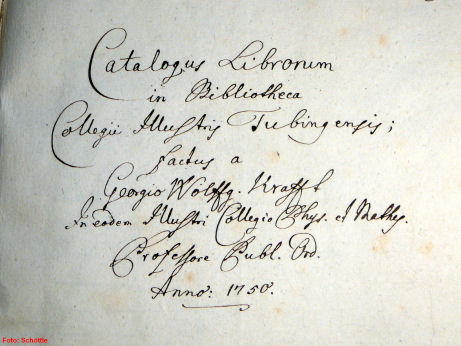 Catalogus Librorum
in Bibliotheca
Collegii Illustris Tubingensis;
factus a
Georgio Wolffg. Krafft
In eodem Illustri Collegio Phys. et Mathes.
Professore Publ. Ord.
Anno: 1750.
Foto: Schöttle